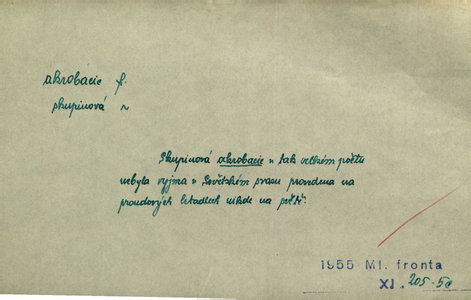 akrobacie f.
skupinová ~
Skupinová akrobacie v tak velkém počtu
nebyla vyjma v Sovětském svazu provedena na
proudových letadlech nikde na světě.
1955 Ml. fronta
XI. 205-5a